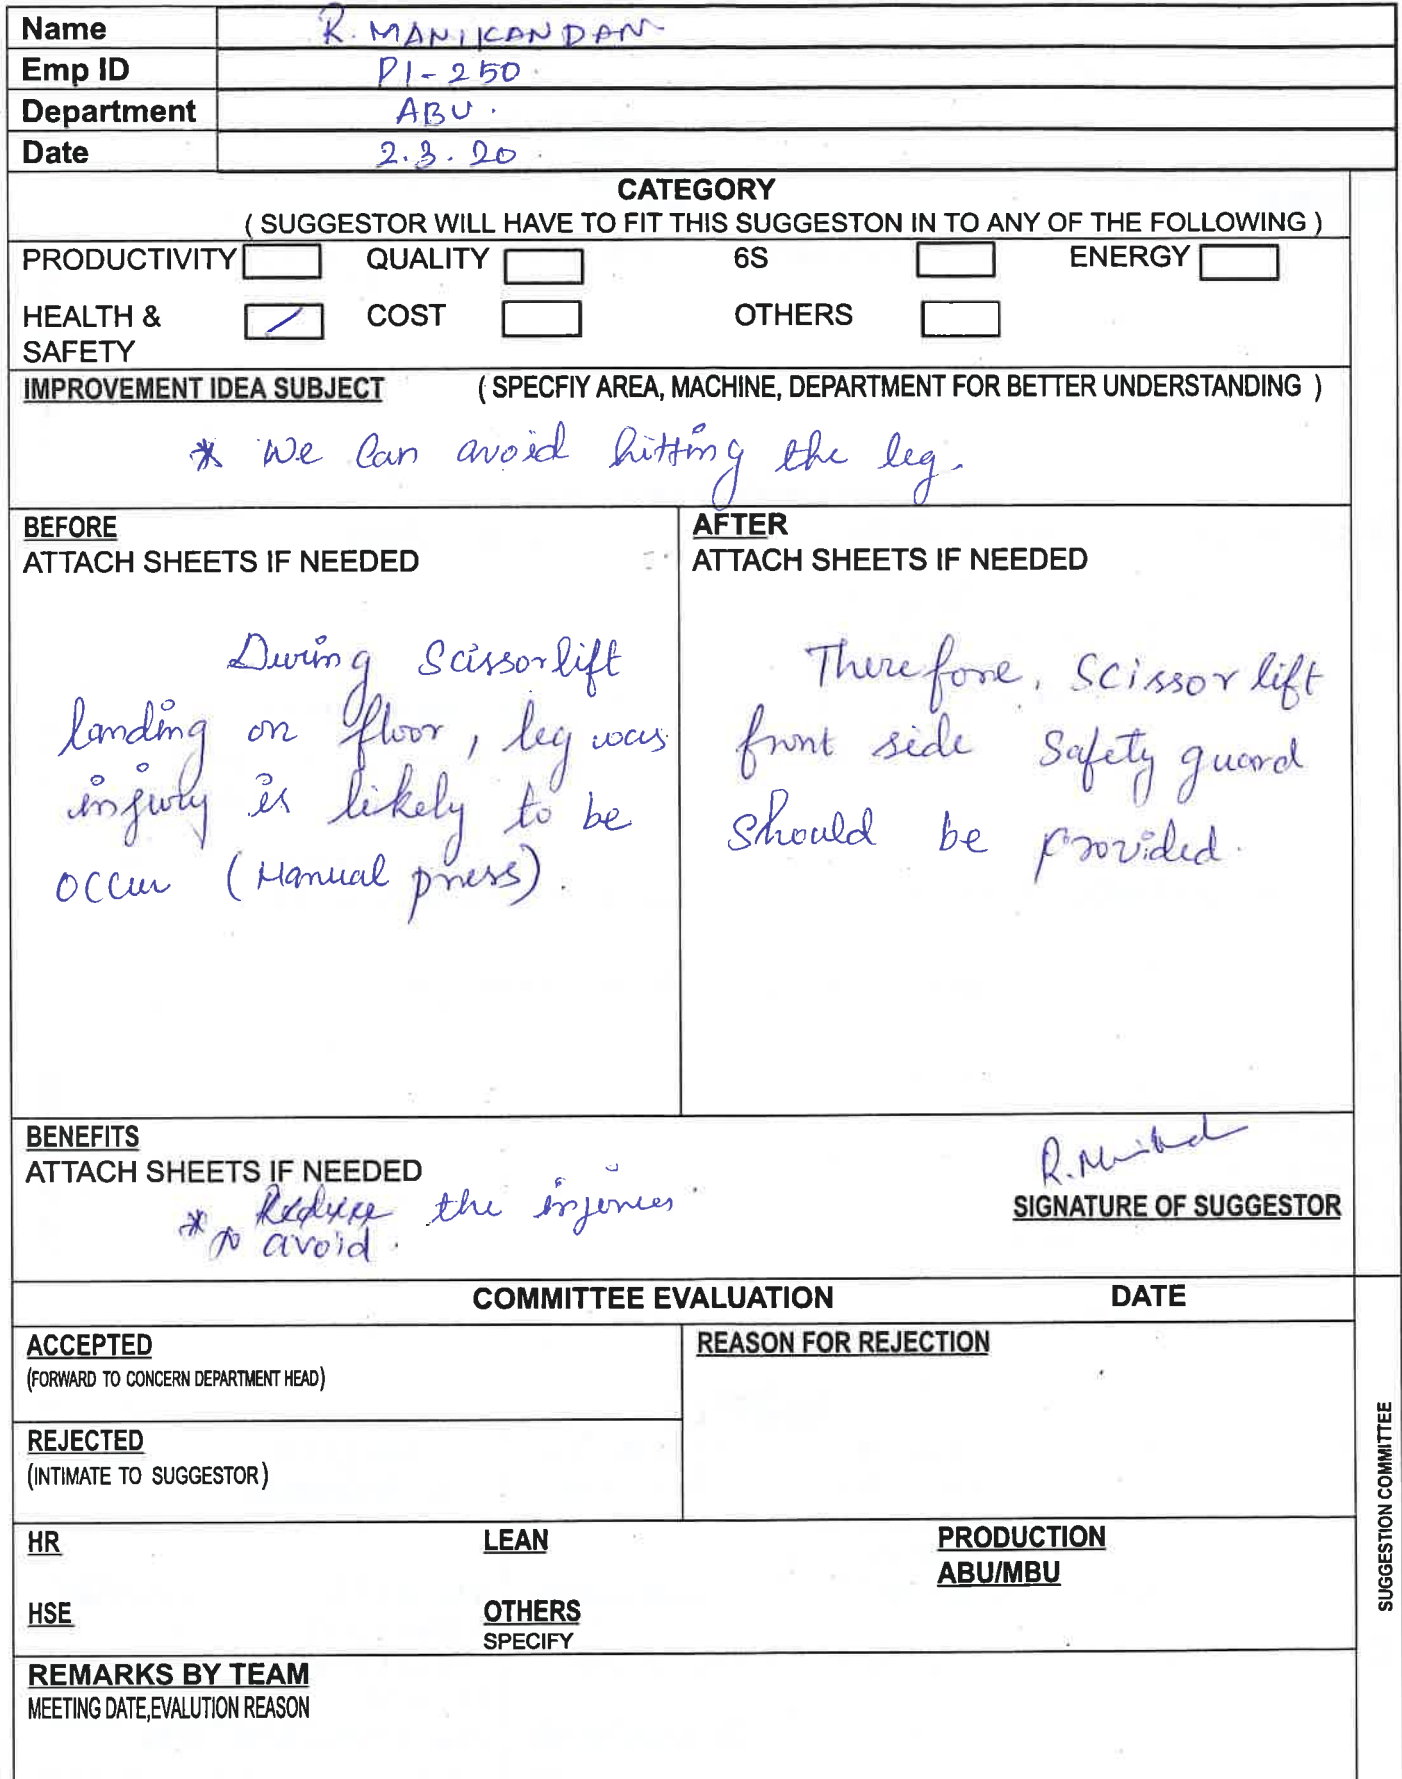 Name R. MANIKANDAN
Emp ID PI-250.
Department ABU.
Date 2.3.20.
CATEGORY
( SUGGESTOR WILL HAVE TO FIT THIS SUGGESTON IN TO ANY OF THE FOLLOWING )
PRODUCTIVITY QUALITY 6S ENERGY
HEALTH & COST OTHERS
SAFETY
IMPROVEMENT IDEA SUBJECT ( SPECFIY AREA, MACHINE, DEPARTMENT FOR BETTER UNDERSTANDING )
* We Can avoid hitting the leg.
BEFORE
ATTACH SHEETS IF NEEDED
During Scissorlift
landing on floor, leg was
injury is likely to be
occur (Manual press).
AFTER
ATTACH SHEETS IF NEEDED
Therefore, Scissor lift
front side Safety guard
should be provided.
BENEFITS
ATTACH SHEETS IF NEEDED
* Reduce the injuries.
to avoid.
SIGNATURE OF SUGGESTOR
COMMITTEE EVALUATION DATE
ACCEPTED
(FORWARD TO CONCERN DEPARTMENT HEAD)
REJECTED
(INTIMATE TO SUGGESTOR)
REASON FOR REJECTION
HR LEAN PRODUCTION
ABU/MBU
HSE OTHERS
SPECIFY
REMARKS BY TEAM
MEETING DATE,EVALUTION REASON
SUGGESTION COMMITTEE